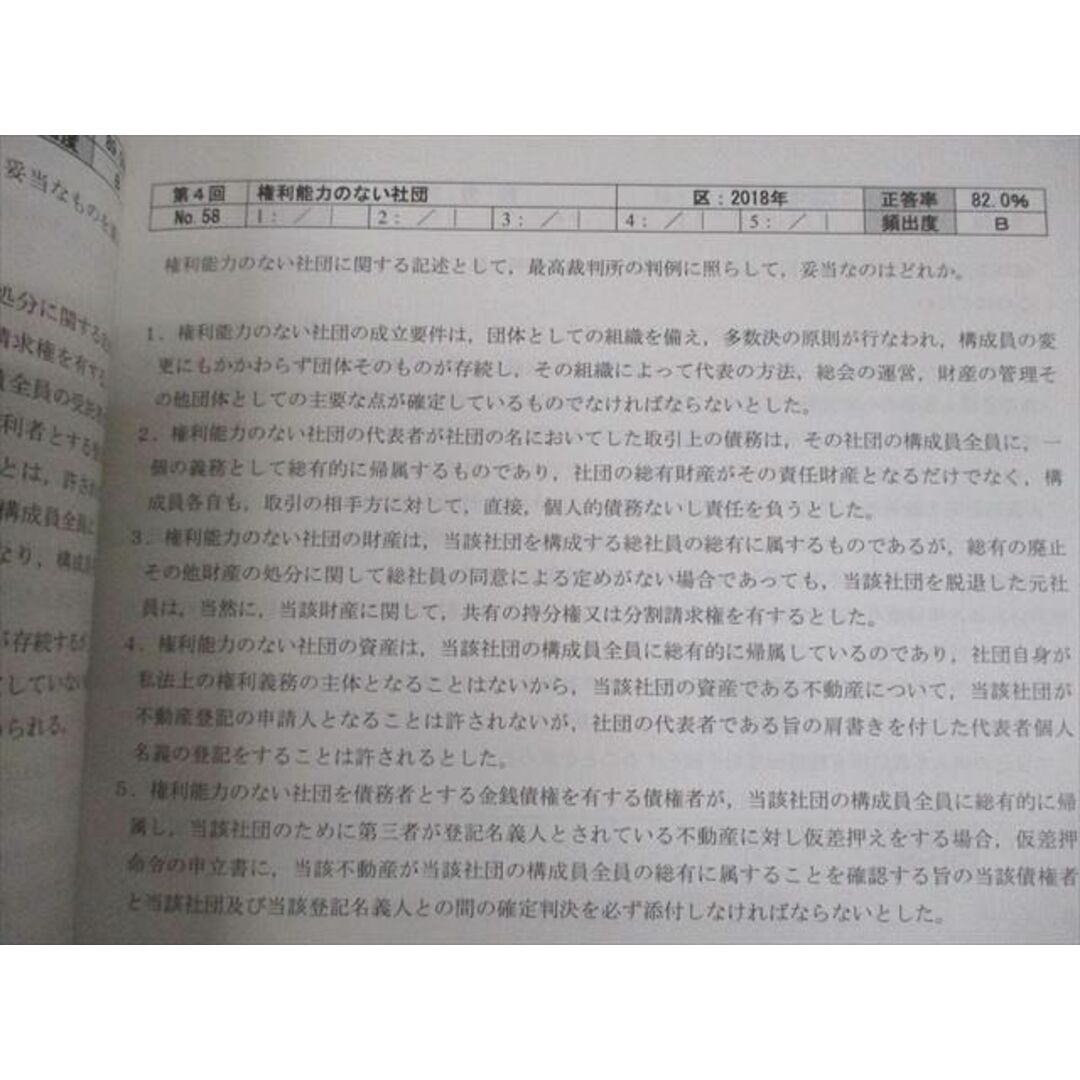 妥当なものを
処分に関する
請求権を有する
全員の受託
利者とする
とは，許さ
構成員全員
なり，構成
存続する
していない
られる。
第4回 権利能力のない社団 区：2018年 正答率 82.0%
No.58 1：／ 2：／ 3：／ 4：／ 5：／ 頻出度 B
権利能力のない社団に関する記述として，最高裁判所の判例に照らして，妥当なのはどれか。
1．権利能力のない社団の成立要件は，団体としての組織を備え，多数決の原則が行なわれ，構成員の変
更にもかかわらず団体そのものが存続し，その組織によって代表の方法，総会の運営，財産の管理そ
の他団体としての主要な点が確定しているものでなければならないとした。
2．権利能力のない社団の代表者が社団の名においてした取引上の債務は，その社団の構成員全員に，一
個の義務として総有的に帰属するものであり，社団の総有財産がその責任財産となるだけでなく，構
成員各自も，取引の相手方に対して，直接，個人的債務ないし責任を負うとした。
3．権利能力のない社団の財産は，当該社団を構成する総社員の総有に属するものであるが，総有の廃止
その他財産の処分に関して総社員の同意による定めがない場合であっても，当該社団を脱退した元社
員は，当然に，当該財産に関して，共有の持分権又は分割請求権を有するとした。
4．権利能力のない社団の資産は，当該社団の構成員全員に総有的に帰属しているのであり，社団自身が
私法上の権利義務の主体となることはないから，当該社団の資産である不動産について，当該社団が
不動産登記の申請人となることは許されないが，社団の代表者である旨の肩書きを付した代表者個人
名義の登記をすることは許されるとした。
5．権利能力のない社団を債務者とする金銭債権を有する債権者が，当該社団の構成員全員に総有的に帰
属し，当該社団のために第三者が登記名義人とされている不動産に対し仮差押えをする場合，仮差押
命令の申立書に，当該不動産が当該社団の構成員全員の総有に属することを確認する旨の当該債権者
と当該社団及び当該登記名義人との間の確定判決を必ず添付しなければならないとした。